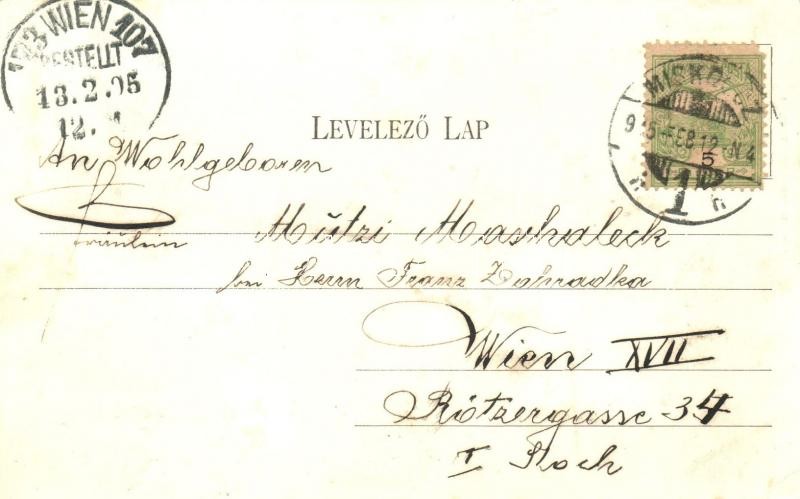 123 WIEN 107
BESTELLT
13.2.05
12.
LEVELEZŐ LAP
MISKO
5
1
An Wohlgeboren
Fräulein Mützi Maskaleck
bei Herrn Franz Zahradka
Wien XVII
Rötzergasse 34
I Stock